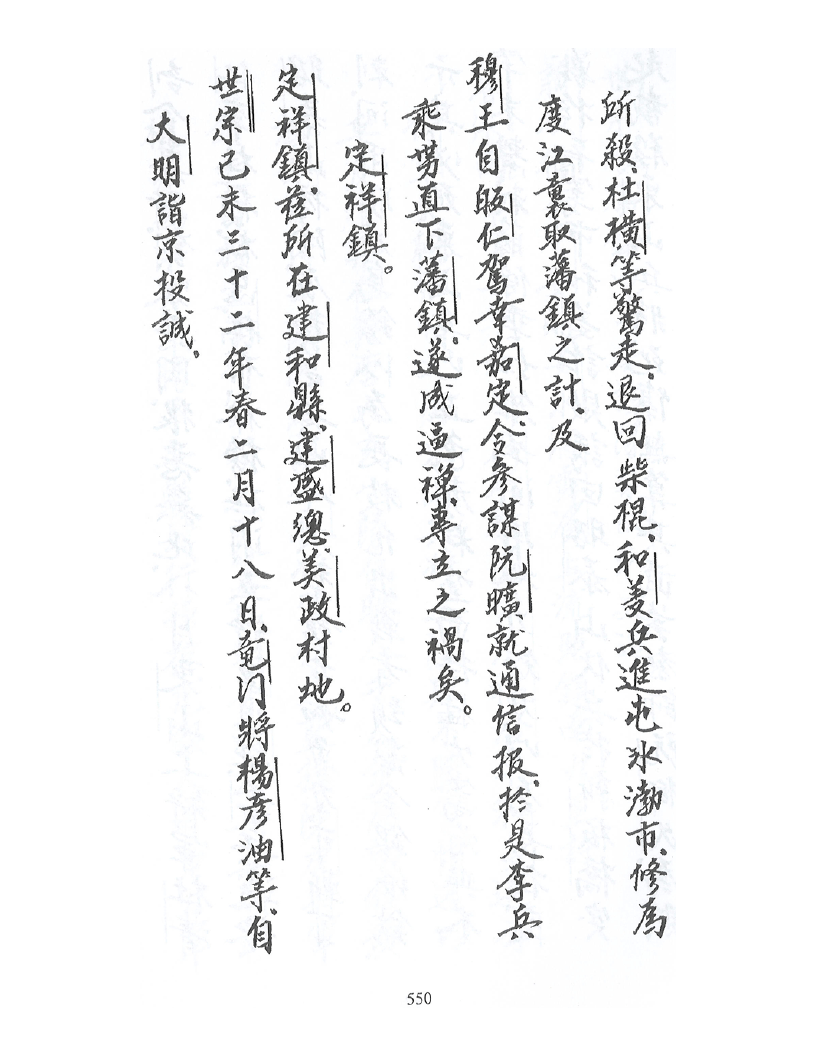 所殺、杜橫等驚走。退回柴棍、和菱兵進屯氷渤市、修為
度江襄取藩鎮之計、及
穆王自皈仁駕幸嘉定、令參謀阮曠就通信报、扵是李兵
乘势直下藩鎮。遂成逼禅、專立之禍矣。
定祥鎮。
定祥鎮。莅所在建和縣、建盛總、美政村地。
世宗己未三十二年春二月十八日、竜门將楊彥油等、自
大明詣京投誠、
550